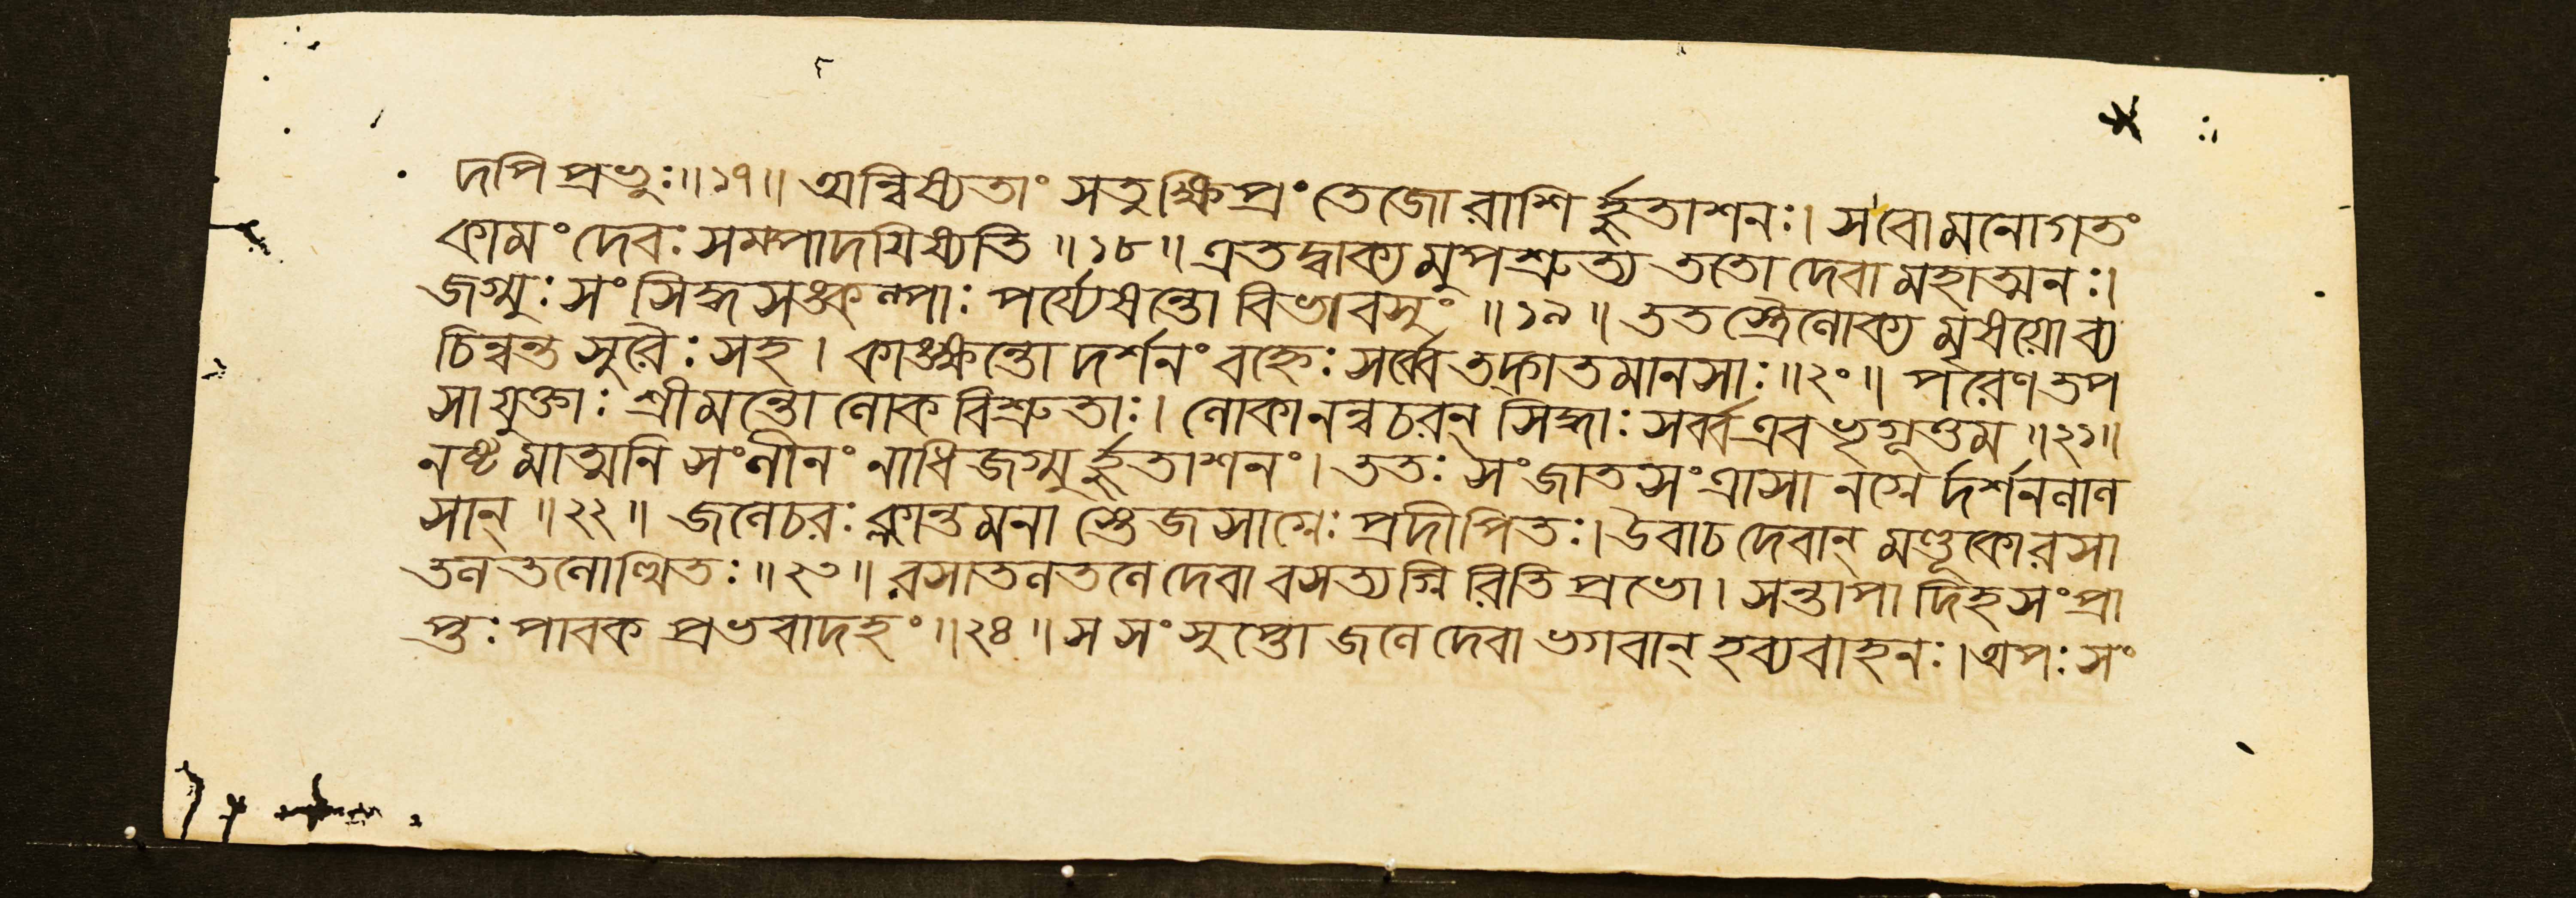 দপি প্রভুঃ॥১৭॥ অন্বিষ্যতাং সতু ক্ষিপ্রং তেজোরাশির্হুতাশনঃ। স বো মনোগতং
কামং দেবঃ সম্পাদয়িষ্যতি ॥১৮॥ এতদ্বাক্যমুপশ্রুত্য ততো দেবা মহাত্মনঃ।
জগ্মুঃ সংসিদ্ধসঙ্কল্পাঃ পর্য্যেষন্তো বিভাবসুং ॥১৯॥ ততস্ত্রৈলোক্যমৃষয়ো ব্য
চিন্বন্ত সুরৈঃ সহ। কাঙ্ক্ষন্তো দর্শনং বহ্নেঃ সর্ব্বে তদ্গতমানসাঃ॥২০॥ পরেণ তপ
সা যুক্তাঃ শ্রীমন্তো লোকবিশ্রুতাঃ। লোকানন্বচরন্ সিদ্ধাঃ সর্ব্ব এব ভৃগূত্তম ॥২১॥
নষ্টমাত্মনি সংলীনং নাধিজগ্মুর্হুতাশনং। ততঃ সংজাতসংত্রাসানগ্নের্দর্শনলাল
সান্ ॥২২॥ জলেচরঃ ক্লান্তমনাস্তেজসাগ্নেঃ প্রদীপিতঃ। উবাচ দেবান্ মণ্ডূকো রসা
তলতলোত্থিতঃ ॥২৩॥ রসাতলতলে দেবা বসত্যগ্নিরিতি প্রভো। সন্তাপাদিহ সংপ্রা
প্তঃ পাবকপ্রভবাদহং ॥২৪॥ স সংসুপ্তো জলে দেবা ভগবান্ হব্যবাহনঃ। অপঃ সং